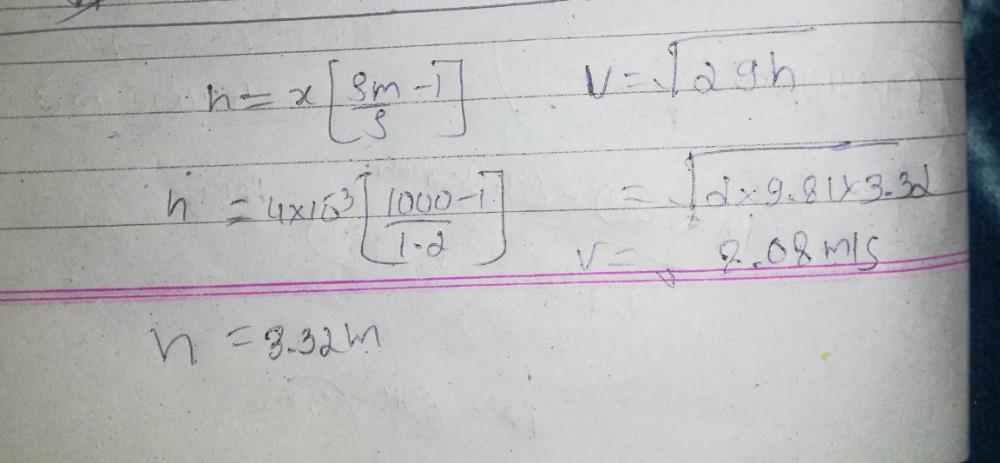 h = x [ρm/ρ - 1]
V = √2gh
h = 4×10⁻³ [1000/1.2 - 1]
= √2×9.81×3.32
V = 8.08 m/s
h = 3.32m